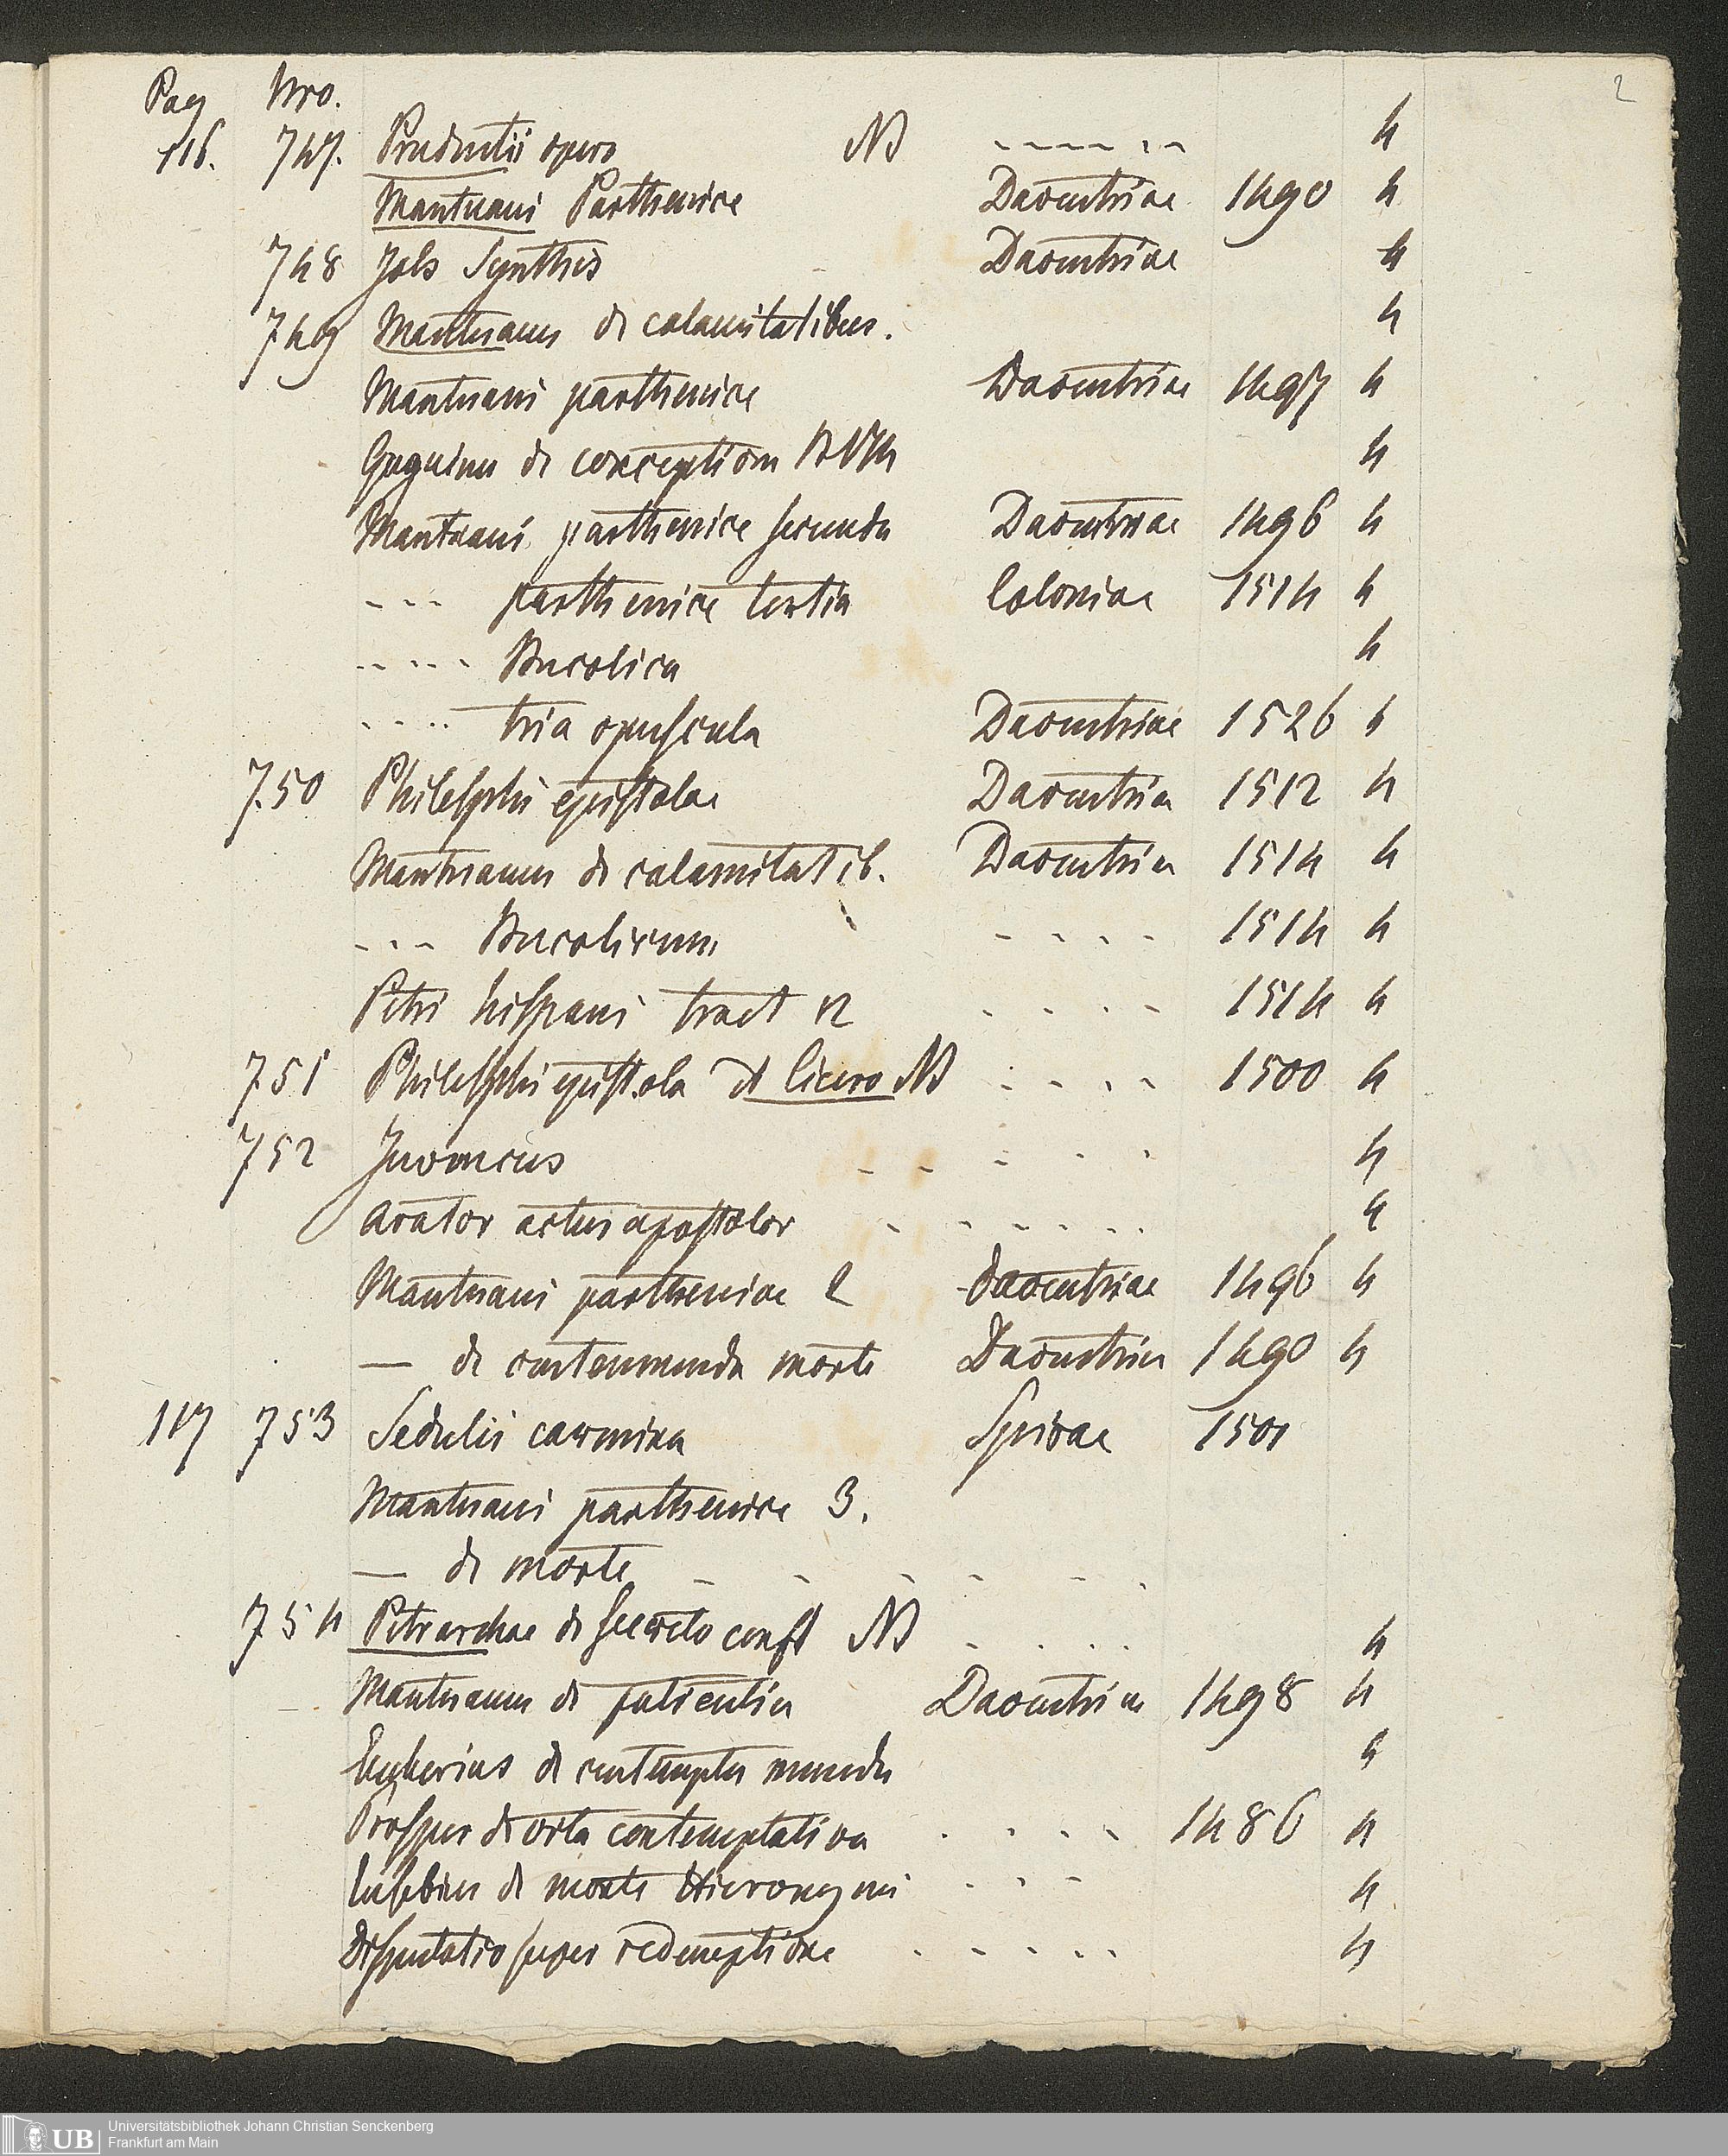 2
Pag Nro.
116. 747. Prudentii opera NB 4
Mantuani Parthenice Daventriae 1490 4
748 Johs Synthis Daventriae 4
749 Mantuanus de calamitatibus. 4
Mantuani parthenice Daventriae 1497 4
Gaguinus de conceptione BVM 4
Mantuani parthenice secunda Daventriae 1496 4
--- parthenice tertia Coloniae 1514 4
---- Bucolica 4
---- tria opuscula Daventriae 1526 4
750 Philelphi epistolae Daventriae 1512 4
Mantuanus de calamitatib. Daventriae 1514 4
--- Bucolicum ---- 1514 4
Petri hispani tract 12 ---- 1514 4
751 Philelphi epistola et Cicero NB ---- 1500 4
752 Juvencus ----- 4
Arator actus apostolor ------ 4
Mantuani parthenice 2 Daventriae 1496 4
— de contemnenda morte Daventriae 1490 4
117 753 Sedulii carmina Spirae 1501
Mantuani parthenice 3.
— de morte ------
754 Petrarchae de secreto conft NB ---- 4
Mantuanus de patientia Daventriae 1498 4
Eucherius de contemptu mundi 4
Prosper de vita contemplativa ---- 1486 4
Eusebius de morte Hieronymi --- 4
Disputatio super redemptione ----- 4
UB Universitätsbibliothek Johann Christian Senckenberg
Frankfurt am Main